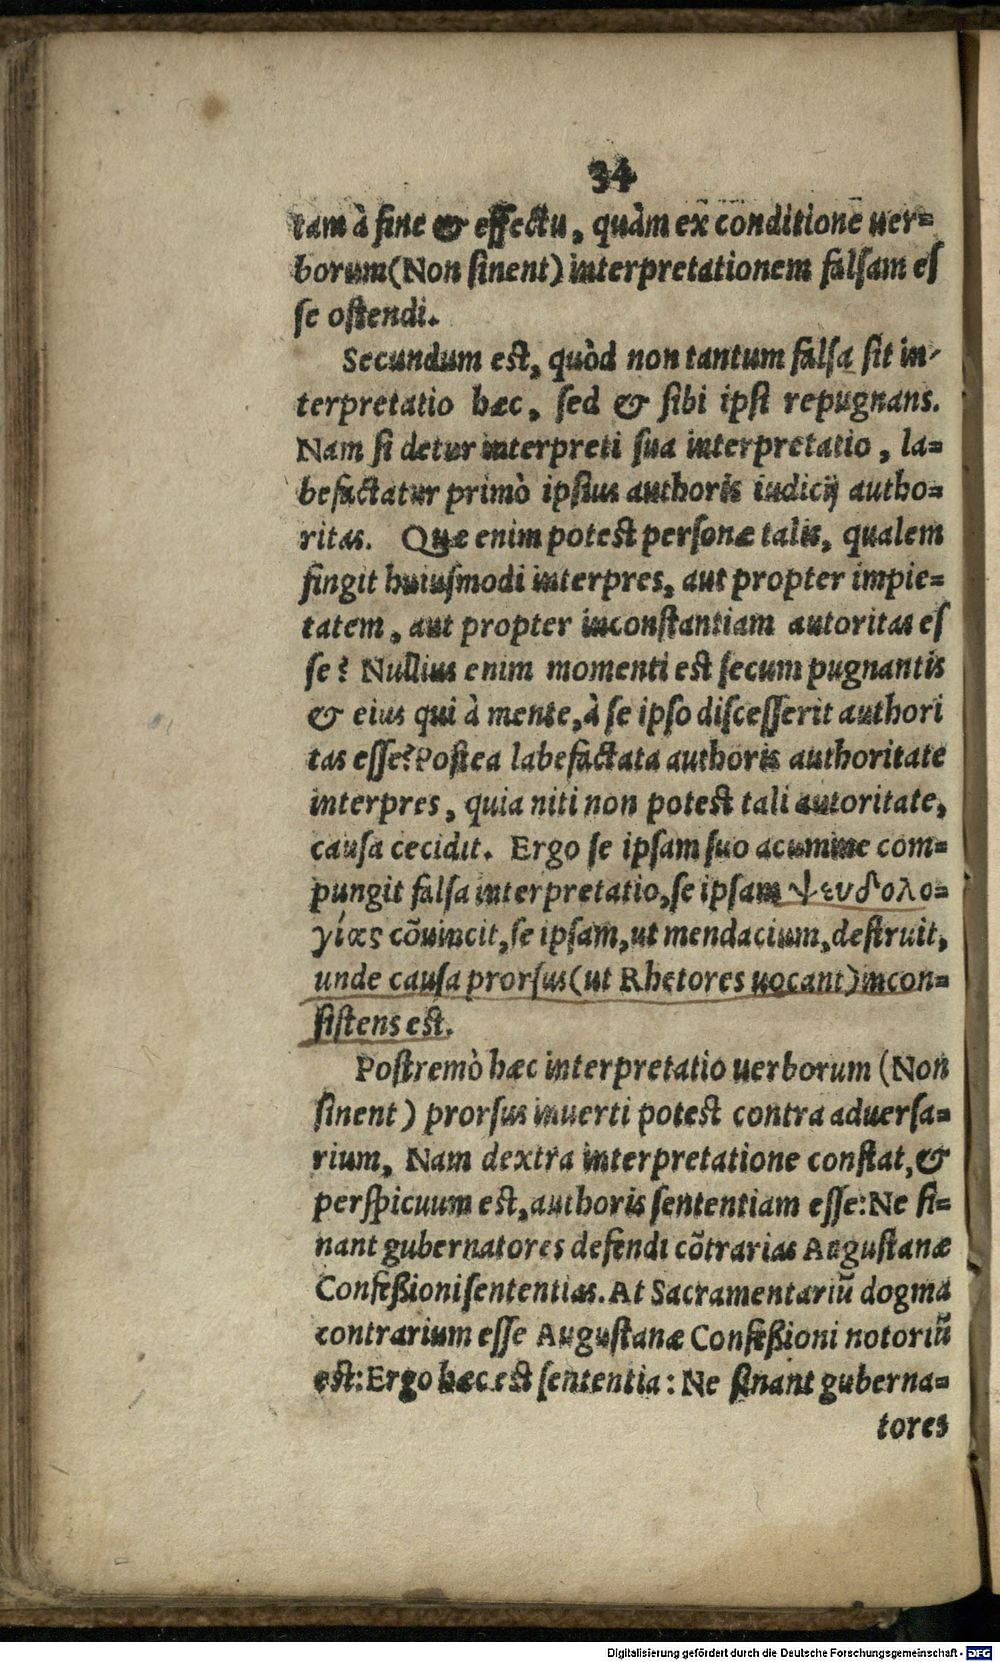 34
tam à fine & effectu, quàm ex conditione uer=
borum(Non ſinent) interpretationem falſam eſ
ſe oſtendi.
Secundum est, quòd non tantum falſa ſit in-
terpretatio hæc, ſed & ſibi ipſi repugnans.
Nam ſi detur interpreti ſua interpretatio, la=
befactatur primò ipſius authoris iudicij autho=
ritas. Quæ enim potest perſonæ talis, qualem
fingit huiuſmodi interpres, aut propter impie=
tatem, aut propter inconſtantiam autoritas eſ
ſe? Nullius enim momenti est ſecum pugnantis
& eius qui à mente, à ſe ipſo diſceſſerit authori
tas eſſe? Poſtea labefactata authoris authoritate
interpres, quia niti non potest tali autoritate,
cauſa cecidit. Ergo ſe ipſam ſuo acumine com=
pungit falſa interpretatio, ſe ipſam ψευδολο=
γίας cõuincit, ſe ipſam, ut mendacium, deſtruit,
unde cauſa prorſus(ut Rhetores uocant) incon=
ſiſtens est.
Poſtremò hæc interpretatio uerborum (Non
ſinent) prorſus inuerti potest contra aduerſa=
rium, Nam dextra interpretatione conſtat, &
perſpicuum est, authoris ſententiam eſſe: Ne ſi=
nant gubernatores defendi cõtrarias Auguſtanæ
Confeßioni ſententias. At Sacramentariũ dogma
contrarium eſſe Auguſtanæ Confeßioni notoriũ
est: Ergo hæc est ſententia: Ne ſinant guberna=
tores
Digitalisierung gefördert durch die Deutsche Forschungsgemeinschaft - DFG